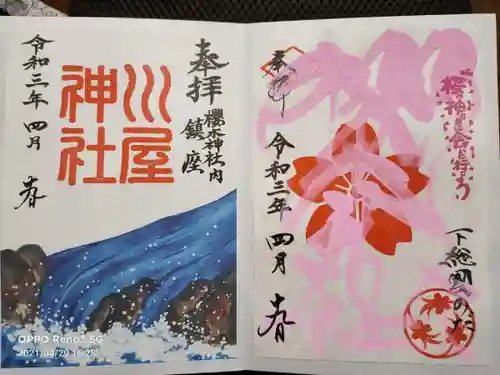 奉拝
櫻木神社内
鎮座
川屋
神社
令和三年 四月 春
奉拝
令和三年 四月 春
下総國のだ
OPPO Reno3 5G
2021/04/29 16:28